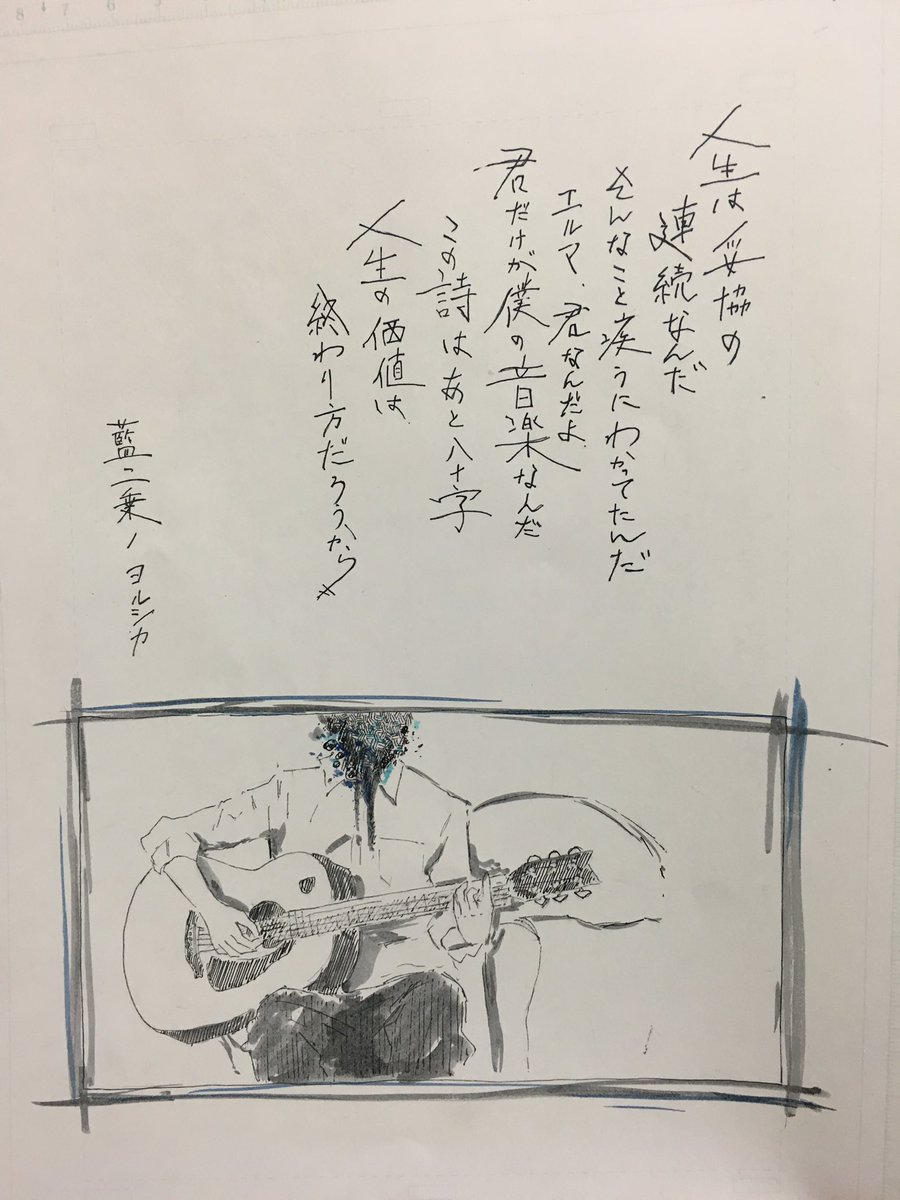 人生は妥協の
連続なんだ
そんなこと疾うにわかってたんだ
エルマ、君なんだよ
君だけが僕の音楽なんだ
この詩はあと八十字
人生の価値は、
終わり方だろうから
藍二乗 / ヨルシカ
8 7 6